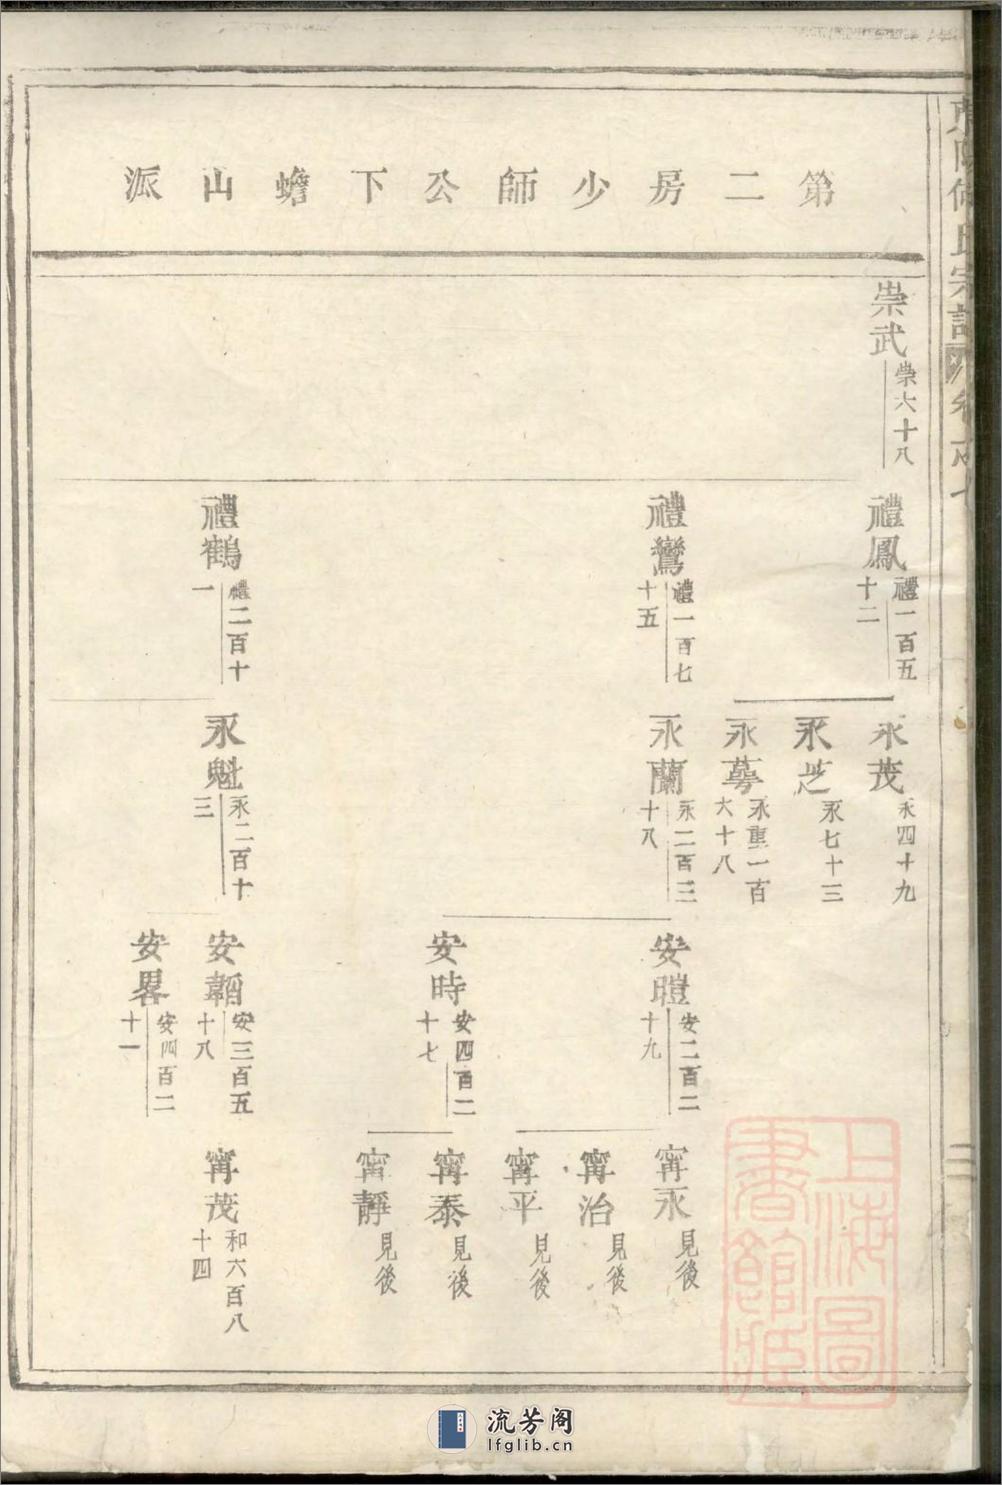 第二房少師公下蟾山派
崇武
崇六十八
禮鳳
禮一百五
十二
禮鸞
禮一百七
十五
禮鶴
禮二百十
一
永茂
永四十九
永芝
永七十三
永萼
永重一百
六十八
永蘭
永二百三
十八
永魁
永二百十
三
安暟
安二百二
十九
安時
安四百二
十七
安韜
安三百五
十八
安畧
安四百二
十一
甯永
見後
甯治
見後
甯平
見後
甯泰
見後
甯靜
見後
甯茂
和六百八
十四
氏宗譜
上海圖
書館藏
流芳阁
lfglib.cn